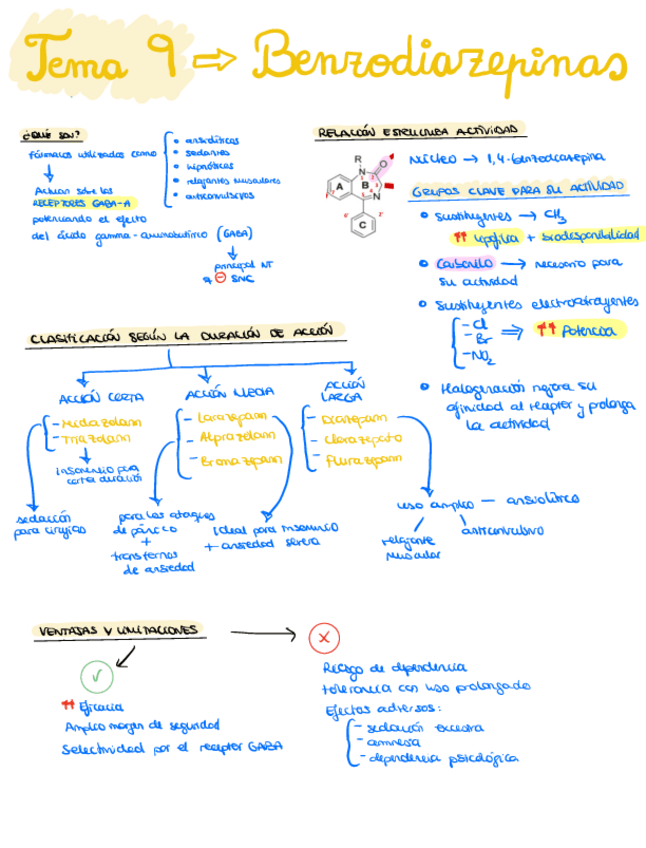 Tema 9 ⇒ Benzodiazepinas
¿QUÉ SON?
Fármacos utilizados como
• ansiolíticos
• sedantes
• hipnóticos
• relajantes musculares
• anticonvulsivos
Actúan sobre los
RECEPTORES GABA-A
potenciando el efecto
del ácido gamma-aminobutírico (GABA)
principal NT
⊖ SNC
RELACIÓN ESTRUCTURA ACTIVIDAD
R
N
O
A
B
N
C
1
2
3
4
5
7
6'
2'
Núcleo → 1,4-benzodiazepina
GRUPOS CLAVE PARA SU ACTIVIDAD
• Sustituyentes → CH3
↑↑ lipofilia + biodisponibilidad
• Carbonilo → necesario para
su actividad
• Sustituyentes electroatrayentes
- Cl
- Br
- NO2
⇒ ↑↑ Potencia
• Halogenación mejora su
afinidad al receptor y prolonga
la actividad
CLASIFICACIÓN SEGÚN LA DURACIÓN DE ACCIÓN
ACCIÓN CORTA
- Midazolam
- Triazolam
insomnio por
corta duración
sedación
para cirugías
ACCIÓN MEDIA
- Lorazepam
- Alprazolam
- Bromazepam
para los ataques
de pánico
+
transtornos
de ansiedad
Ideal para insomnio
+ ansiedad severa
ACCIÓN
LARGA
- Diazepam
- Clorazepato
- Flurazepam
uso amplio — ansiolítico
relajante
muscular
anticonvulsivo
VENTAJAS Y LIMITACIONES
↑↑ Eficacia
Amplio margen de seguridad
Selectividad por el receptor GABA
Riesgo de dependencia
tolerancia con uso prolongado
Efectos adversos:
- sedación excesiva
- amnesia
- dependencia psicológica